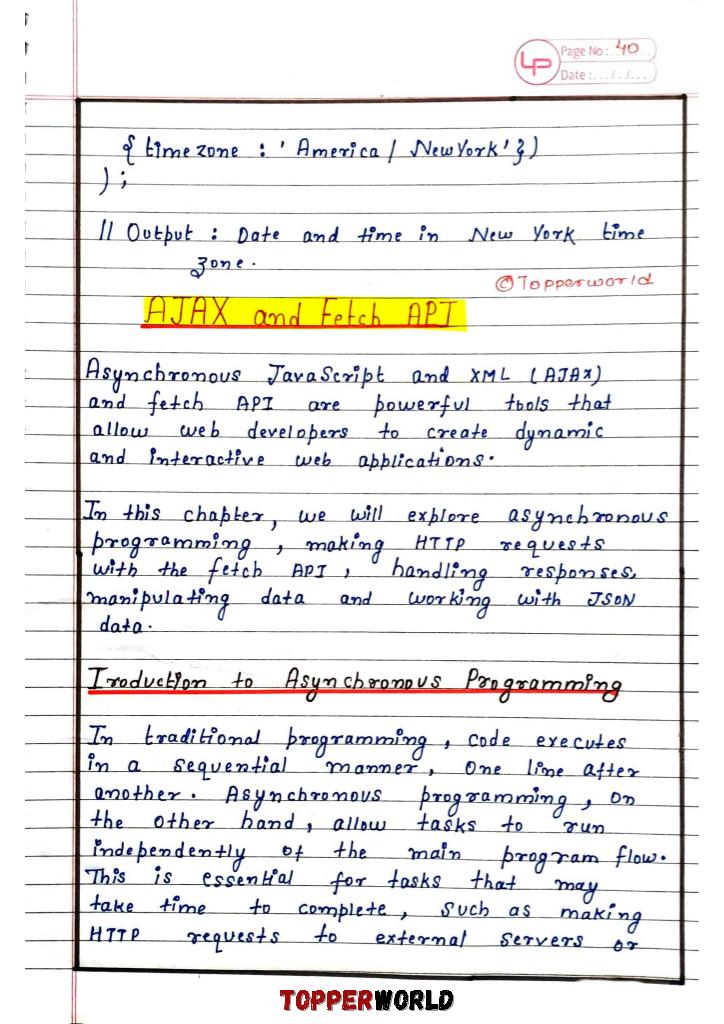 LP
Page No: 40
Date: .../.../...
{ timezone : 'America / NewYork' })
);
// Output : Date and time in New York time
zone.
© Topperworld
AJAX and Fetch API
Asynchronous JavaScript and XML (AJAX)
and fetch API are powerful tools that
allow web developers to create dynamic
and interactive web applications.
In this chapter, we will explore asynchronous
programming, making HTTP requests
with the fetch API, handling responses,
manipulating data and working with JSON
data.
Iroduction to Asynchronous Programming
In traditional programming, code executes
in a sequential manner, one line after
another. Asynchronous programming, on
the other hand, allow tasks to run
independently of the main program flow.
This is essential for tasks that may
take time to complete, such as making
HTTP requests to external servers or
TOPPERWORLD